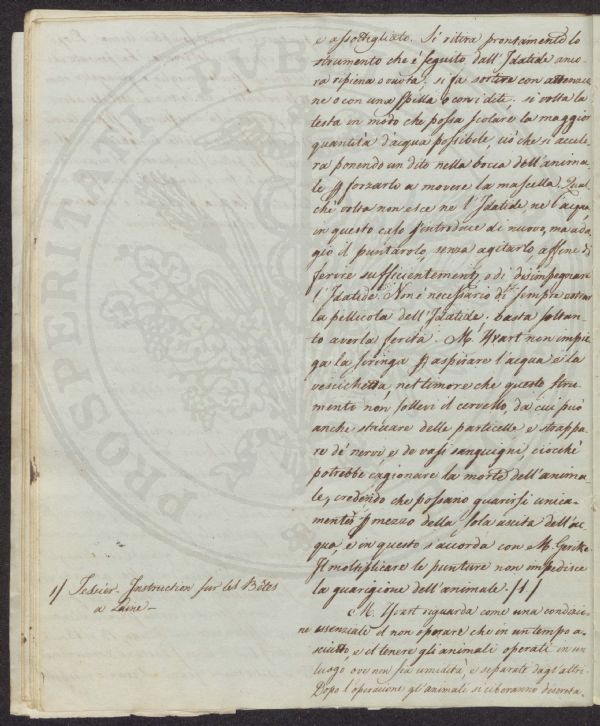 e assottigliato. Si ritira prontamente lo
strumento che è seguito dall'Idatide anco-
ra ripiena o vuota. si fa sortire con attenzio-
ne o con una spilla o con i diti. si volta la
testa in modo che possa scolare la maggior
quantità d'acqua possibile ciò che si accele-
ra ponendo un dito nella bocca dell'anima-
le p forzarlo a movere la mascella. Qual
chè volta non esce ne l'Idatide ne l'acqua,
in questo caso s'introduce di nuovo, ma ada-
gio il puntarolo, senza agitarlo, affine di
ferire sufficientemente, o di disimpegnare
l'Idatide. Non è necessario di sempre estrar
la pellicola dell'Idatide. basta soltan-
to averla ferita. M. Yvart non impie-
ga la siringa p aspirare l'acqua e la
vescichetta, nel timore che questo stru-
mento non sollevi il cervello, da cui può
anche stirare delle particelle e strappa-
re de' nervi e de vasi sanguigni, ciocchè
potrebbe cagionare la morte dell'anima-
le, credendo che possano guarirsi unica-
mente p mezzo della sola uscita dell'ac
qua, e in questo s'accorda con M. Gerike
Il moltiplicare le punture non impedisce
la guarigione dell'animale. /1/
M. Yvart riguarda come una condizio-
ne essenziale il non operare che in un tempo a-
sciutto, e il tenere gli animali operati in un
luogo ove non sia umidità, e separati dagl'altri.
Dopo l'operazione gl'animali si ciberanno discreta-
1/ Tessier. Instruction sur les Bêtes
a Laine -
PROSPERITATI PUBL